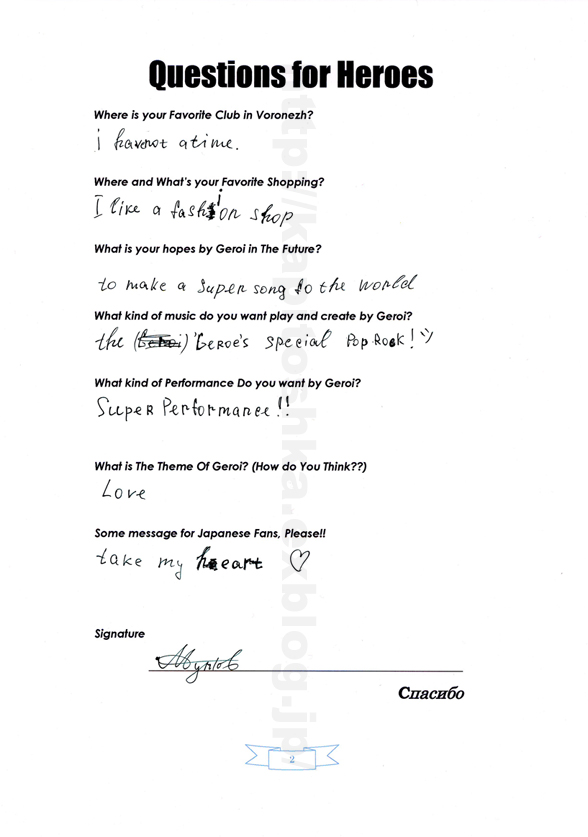 Questions for Heroes
Where is your Favorite Club in Voronezh?
i havnot a time.
Where and What's your Favorite Shopping?
I like a fashion shop
What is your hopes by Geroi in The Future?
to make a super song to the world
What kind of music do you want play and create by Geroi?
the ( ) 'Geroe's special Pop Rock! :)
What kind of Performance Do you want by Geroi?
Super Performance!!
What is The Theme Of Geroi? (How do You Think??)
Love
Some message for Japanese Fans, Please!!
take my heart ♡
Signature
Спасибо
2
http://kaptoshka.exblog.jp/